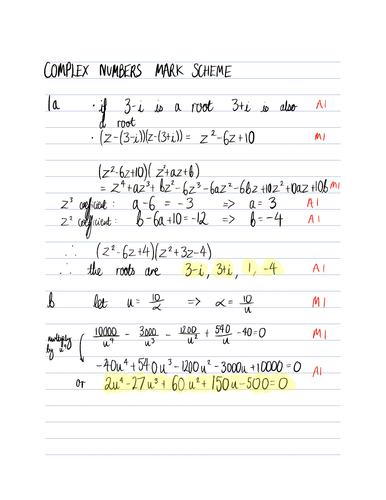 COMPLEX NUMBERS MARK SCHEME
1a · if 3-i is a root 3+i is also A1
a root
· (z-(3-i))(z-(3+i)) = z²-6z+10 M1
(z²-6z+10)(z²+az+b)
= z⁴+az³+bz²-6z³-6az²-6bz+10z²+10az+10b M1
z³ coefficient: a-6 = -3 => a = 3 A1
z² coefficient: b-6a+10 = -12 => b = -4 A1
∴ (z²-6z+4)(z²+3z-4)
∴ the roots are 3-i, 3+i, 1, -4 A1
b let u = 10/α => α = 10/u M1
10000/u⁴ - 3000/u³ - 1200/u² + 540/u - 40 = 0 M1
multiply
by u⁴
-40u⁴+540u³-1200u²-3000u+10000 = 0 A1
or 2u⁴-27u³+60u²+150u-500 = 0